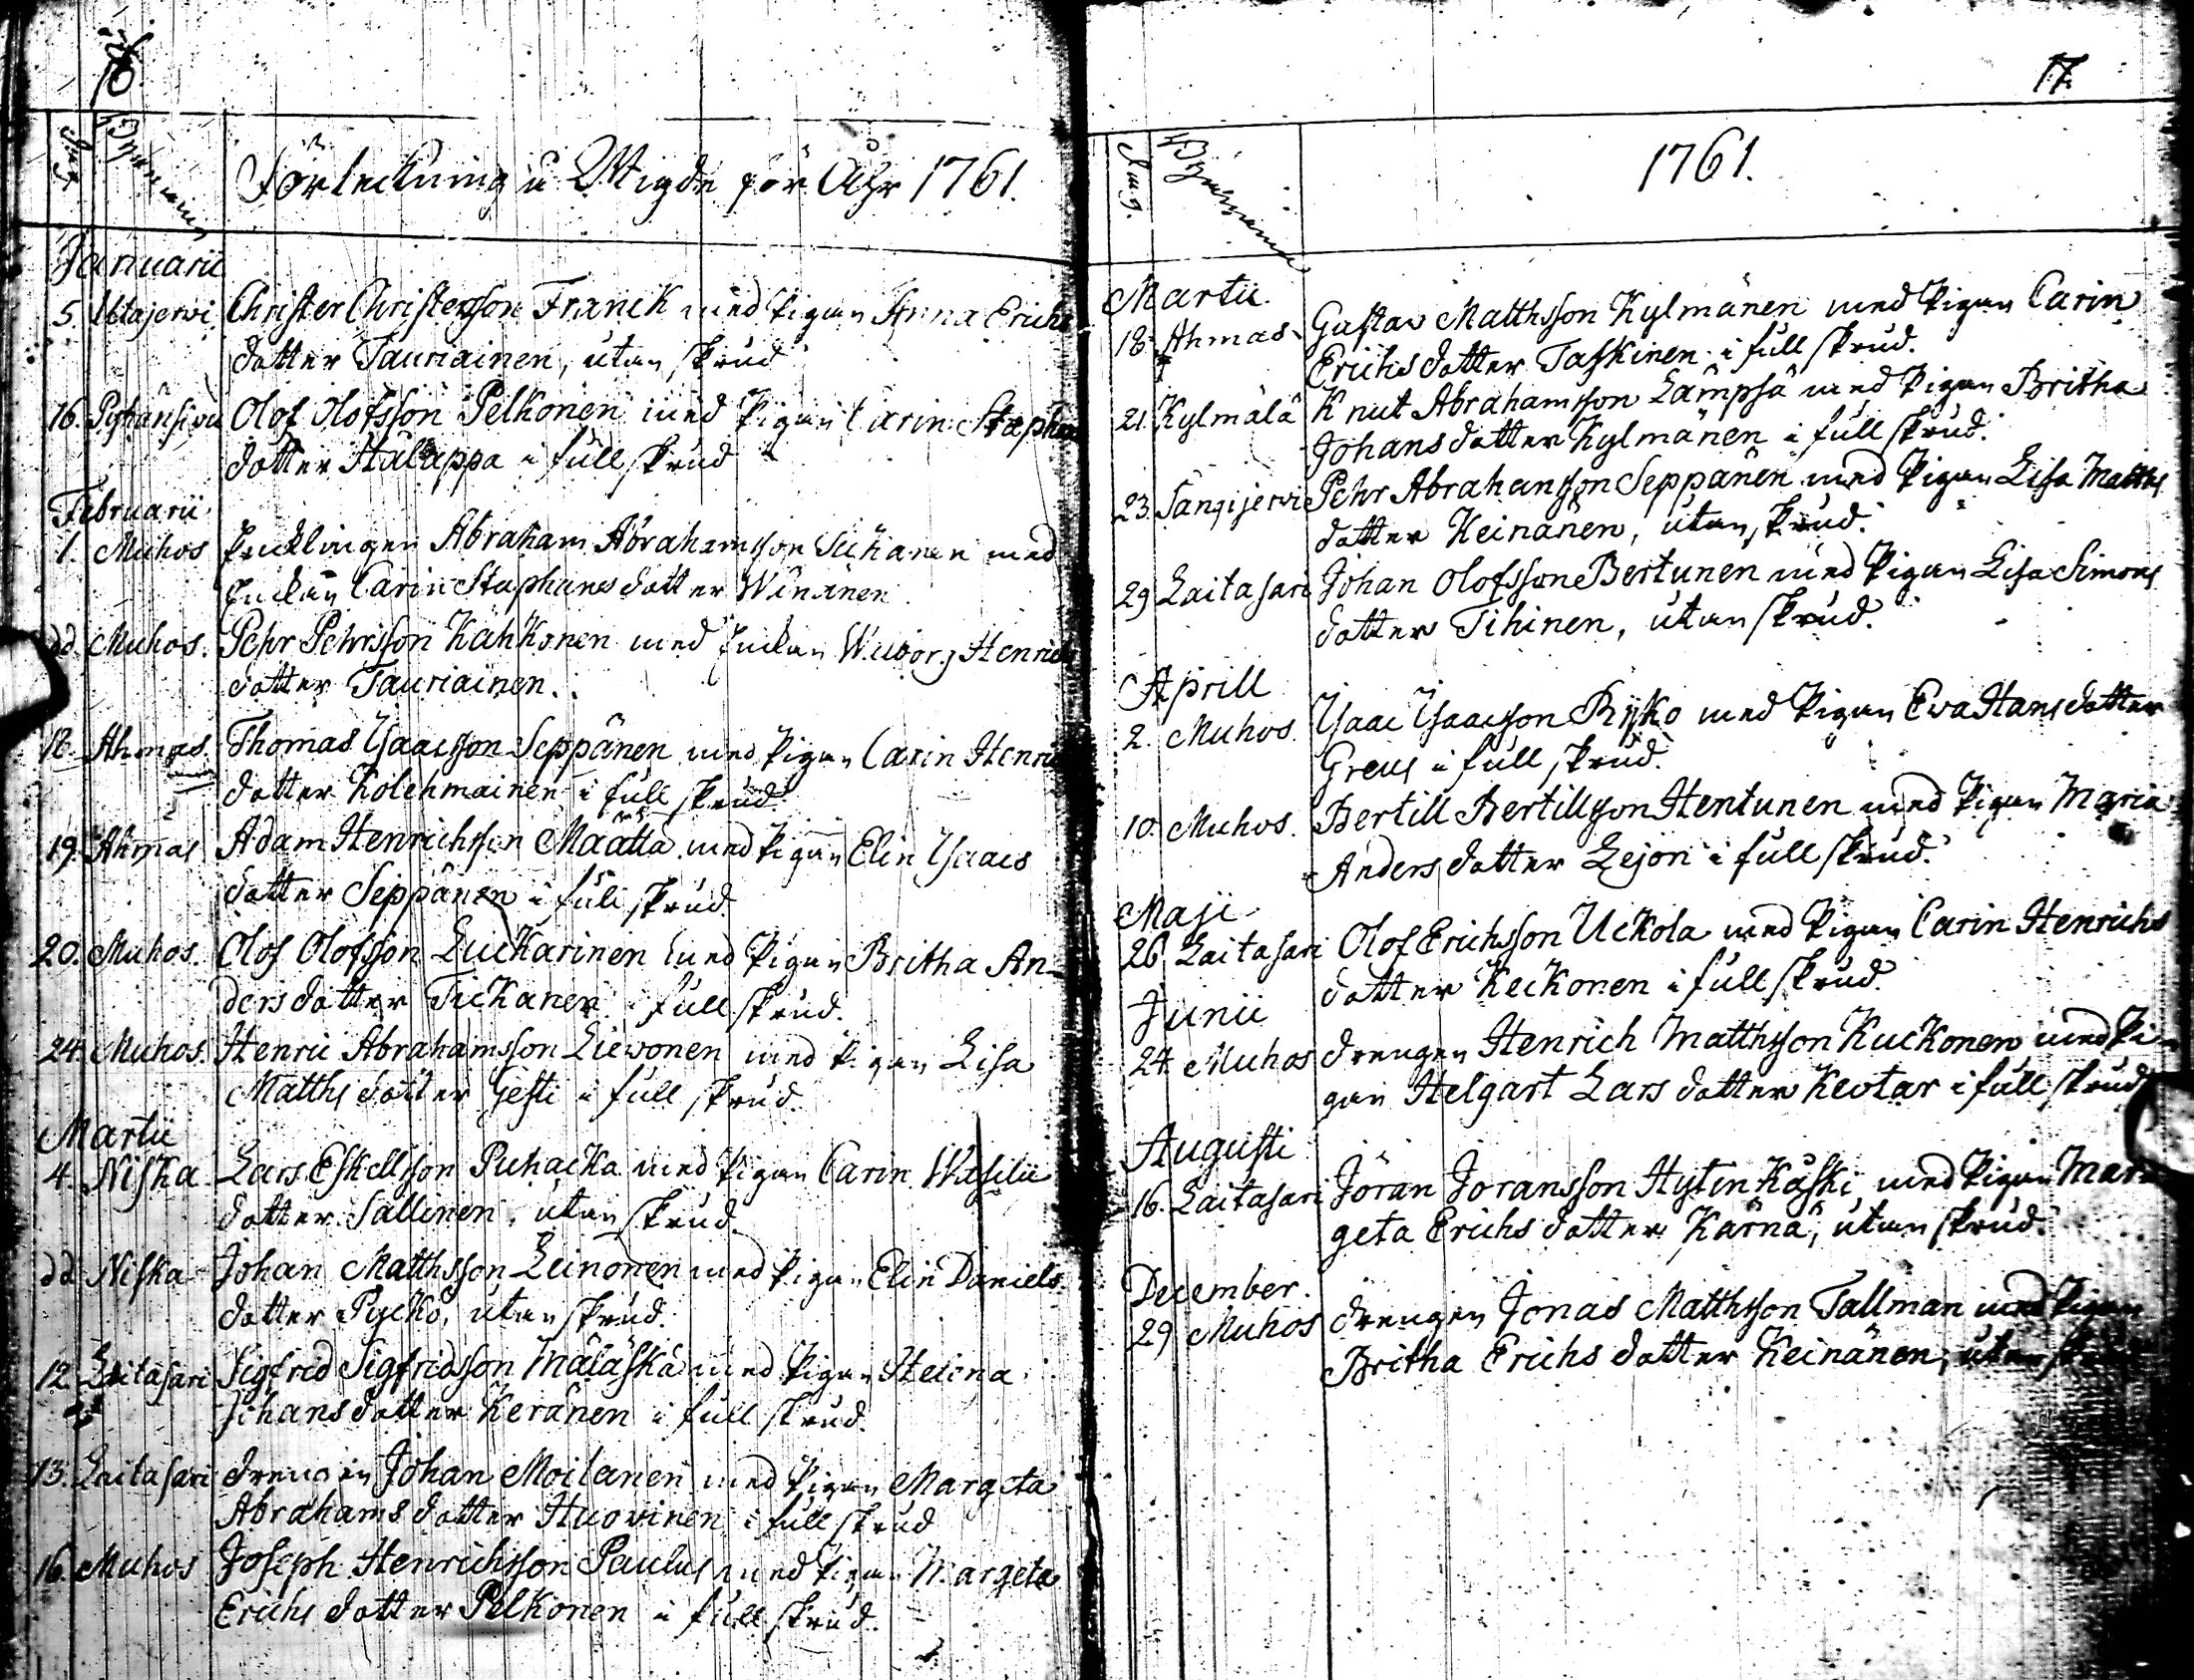 16.
Dag Byarnamn
Förteckning å Wigde för Åhr 1761.
Januarii
5. Utajerwi Christer Christersson Franck med Pigan Anna Erichs
dotter Tauriainen, utan skrud
16. Pyhänsivu Olof Olofsson Pelkonen med Pigan Carin Staphans
dotter Halappa i full skrud
Februarii
1. Muhos Encklingen Abraham Abrahamsson med
Enckan Carin Staphans dotter Winänen
dd. Muhos. Pehr Pehrsson Kähkönen med Enckan Wiborg Henrichs
dotter Tauriainen.
18. Ahmas. Thomas Isaacsson Seppänen med Pigan Carin Henrichs
dotter Kolehmainen i full skrud
19. Ahmas Adam Henrichsson Määttä med Pigan Elin Isaacs
dotter Seppänen i full skrud.
20. Muhos. Olof Olofsson Luckarinen med Pigan Britha An-
ders dotter Tickanen i full skrud.
24. Muhos. Henric Abrahamsson Liewonen med Pigan Lisa
Matths dotter Gesti i full skrud.
Martii
4. Niska Lars Eskellsson Puhacka med Pigan Carin Wasilii
dotter Sallinen, utan skrud.
dd Niska Johan Matthsson Leinonen med Pigan Elin Daniels
dotter Pycko, utan skrud.
12 Laitasari Sigfred Sigfredsson Mäläskä med Pigan Helena
Johans dotter Keränen i full skrud.
13. Laitasari drengen Johan Moilanen med Pigan Margeta
Abrahams dotter Huovinen i full skrud
16. Muhos Joseph Henrichsson Paulus med Pigan Margeta
Erichs dotter Pelkonen i full skrud.
17.
Dag. Byarnamn
1761.
Martii.
18. Ahmas Gustav Matthsson Kylmänen med Pigan Carin
Erichs dotter Taskinen i full skrud.
21. Kylmälä Knut Abrahamsson Lämpsä med Pigan Britha
Johans dotter Kylmänen i full skrud.
23. Sangijerwi Pehr Abrahamsson Seppänen med Pigan Lisa Matths
dotter Keinänen, utan skrud.
29 Laitasari Johan Olofsson Bertunen med Pigan Lisa Simons
dotter Tihinen, utan skrud.
Aprill
2. Muhos. Isaac Isaacsson Ryko med Pigan Eva Hans dotter
Greus i full skrud.
10. Muhos. Bertill Bertillsson Hentunen med Pigan Maria
Anders dotter Lejon i full skrud.
Maji
26 Laitasari Olof Erichsson Uckola med Pigan Carin Henrichs
dotter Keckonen i full skrud
Junii
24 Muhos drengen Henrich Matthsson Kuckonen med Pi-
gan Helgart Lars dotter Keotar i full skrud
Augusti
16. Laitasari Jöran Joransson Hytinkoski med Pigan Mar-
geta Erichs dotter Kärnä, utan skrud.
December.
29 Muhos drengen Jonas Matthsson Tallman med Pigan
Britha Erichs dotter Keinänen, utan skrud